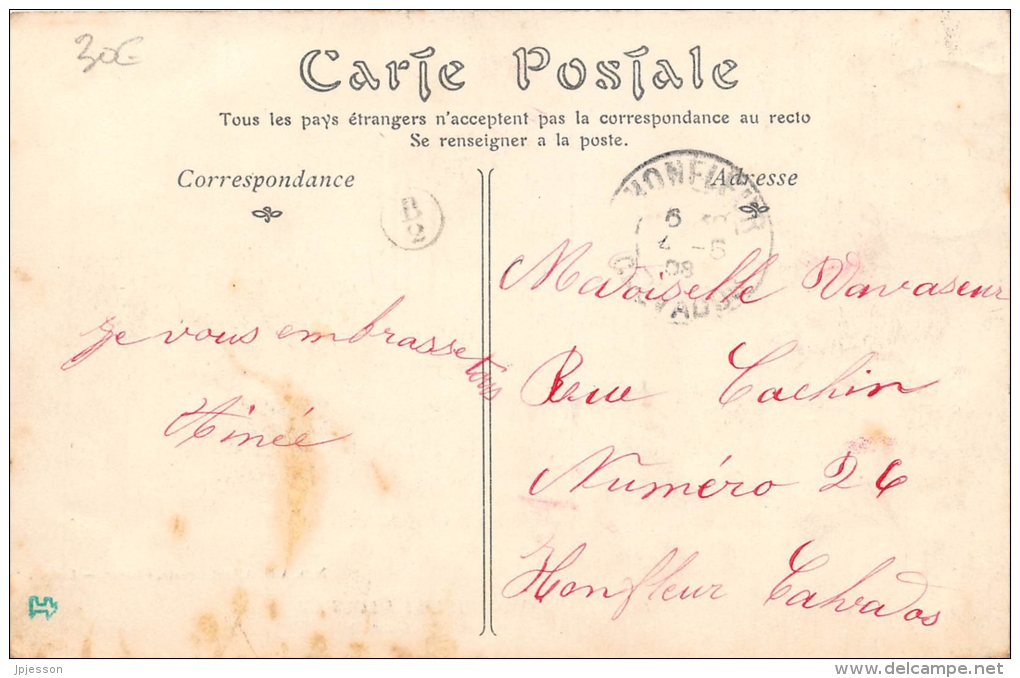 30€
Carte Postale
Tous les pays étrangers n'acceptent pas la correspondance au recto
Se renseigner a la poste.
Correspondance
Adresse
B
2
HONFLEUR
6
4 -5
08
CALVADOS
Madoiselle Vavaseur
je vous embrasse tous
Rue Cachin
Ainée
Numéro 26
Honfleur Calvados
jpjesson
www.delcampe.net